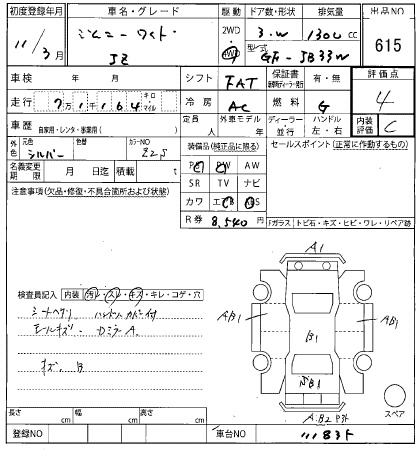 初度登録年月 車名・グレード 駆動 ドア数・形状 排気量 出品NO
11/3月 ジムニーワイド 2WD 3.W 1300 CC 615
JZ 4WD 型式 GF-JB33W
車検 年 月 シフト FAT 保証書 有・無 評価点
走行 7万1千164 キロ マイル 冷房 AC 燃料 G 4
車歴 自家用・レンタ・事業用( ) 定員 人 外車モデル 年 ディーラー・並行 ハンドル 左・右 内装評価 C
外色 元色 シルバー 色替 カラーNO Z2S 装備品(純正品に限る) セールスポイント(正常に作動するもの)
名義変更期限 月 日迄 積載 t PS PW AW
注意事項(欠品・修復・不具合箇所および状態) SR TV ナビ
カワ エアB ABS
R券 8,540円 「ガラス」トビ石・キズ・ヒビ・ワレ・リペア跡
検査員記入 内装 汚レ・スレ・キズ・キレ・コゲ・穴
A1
AB1
AB1
B1
キズ、B
スペア
長さ cm 幅 cm 高さ cm
登録NO 車台NO 111835